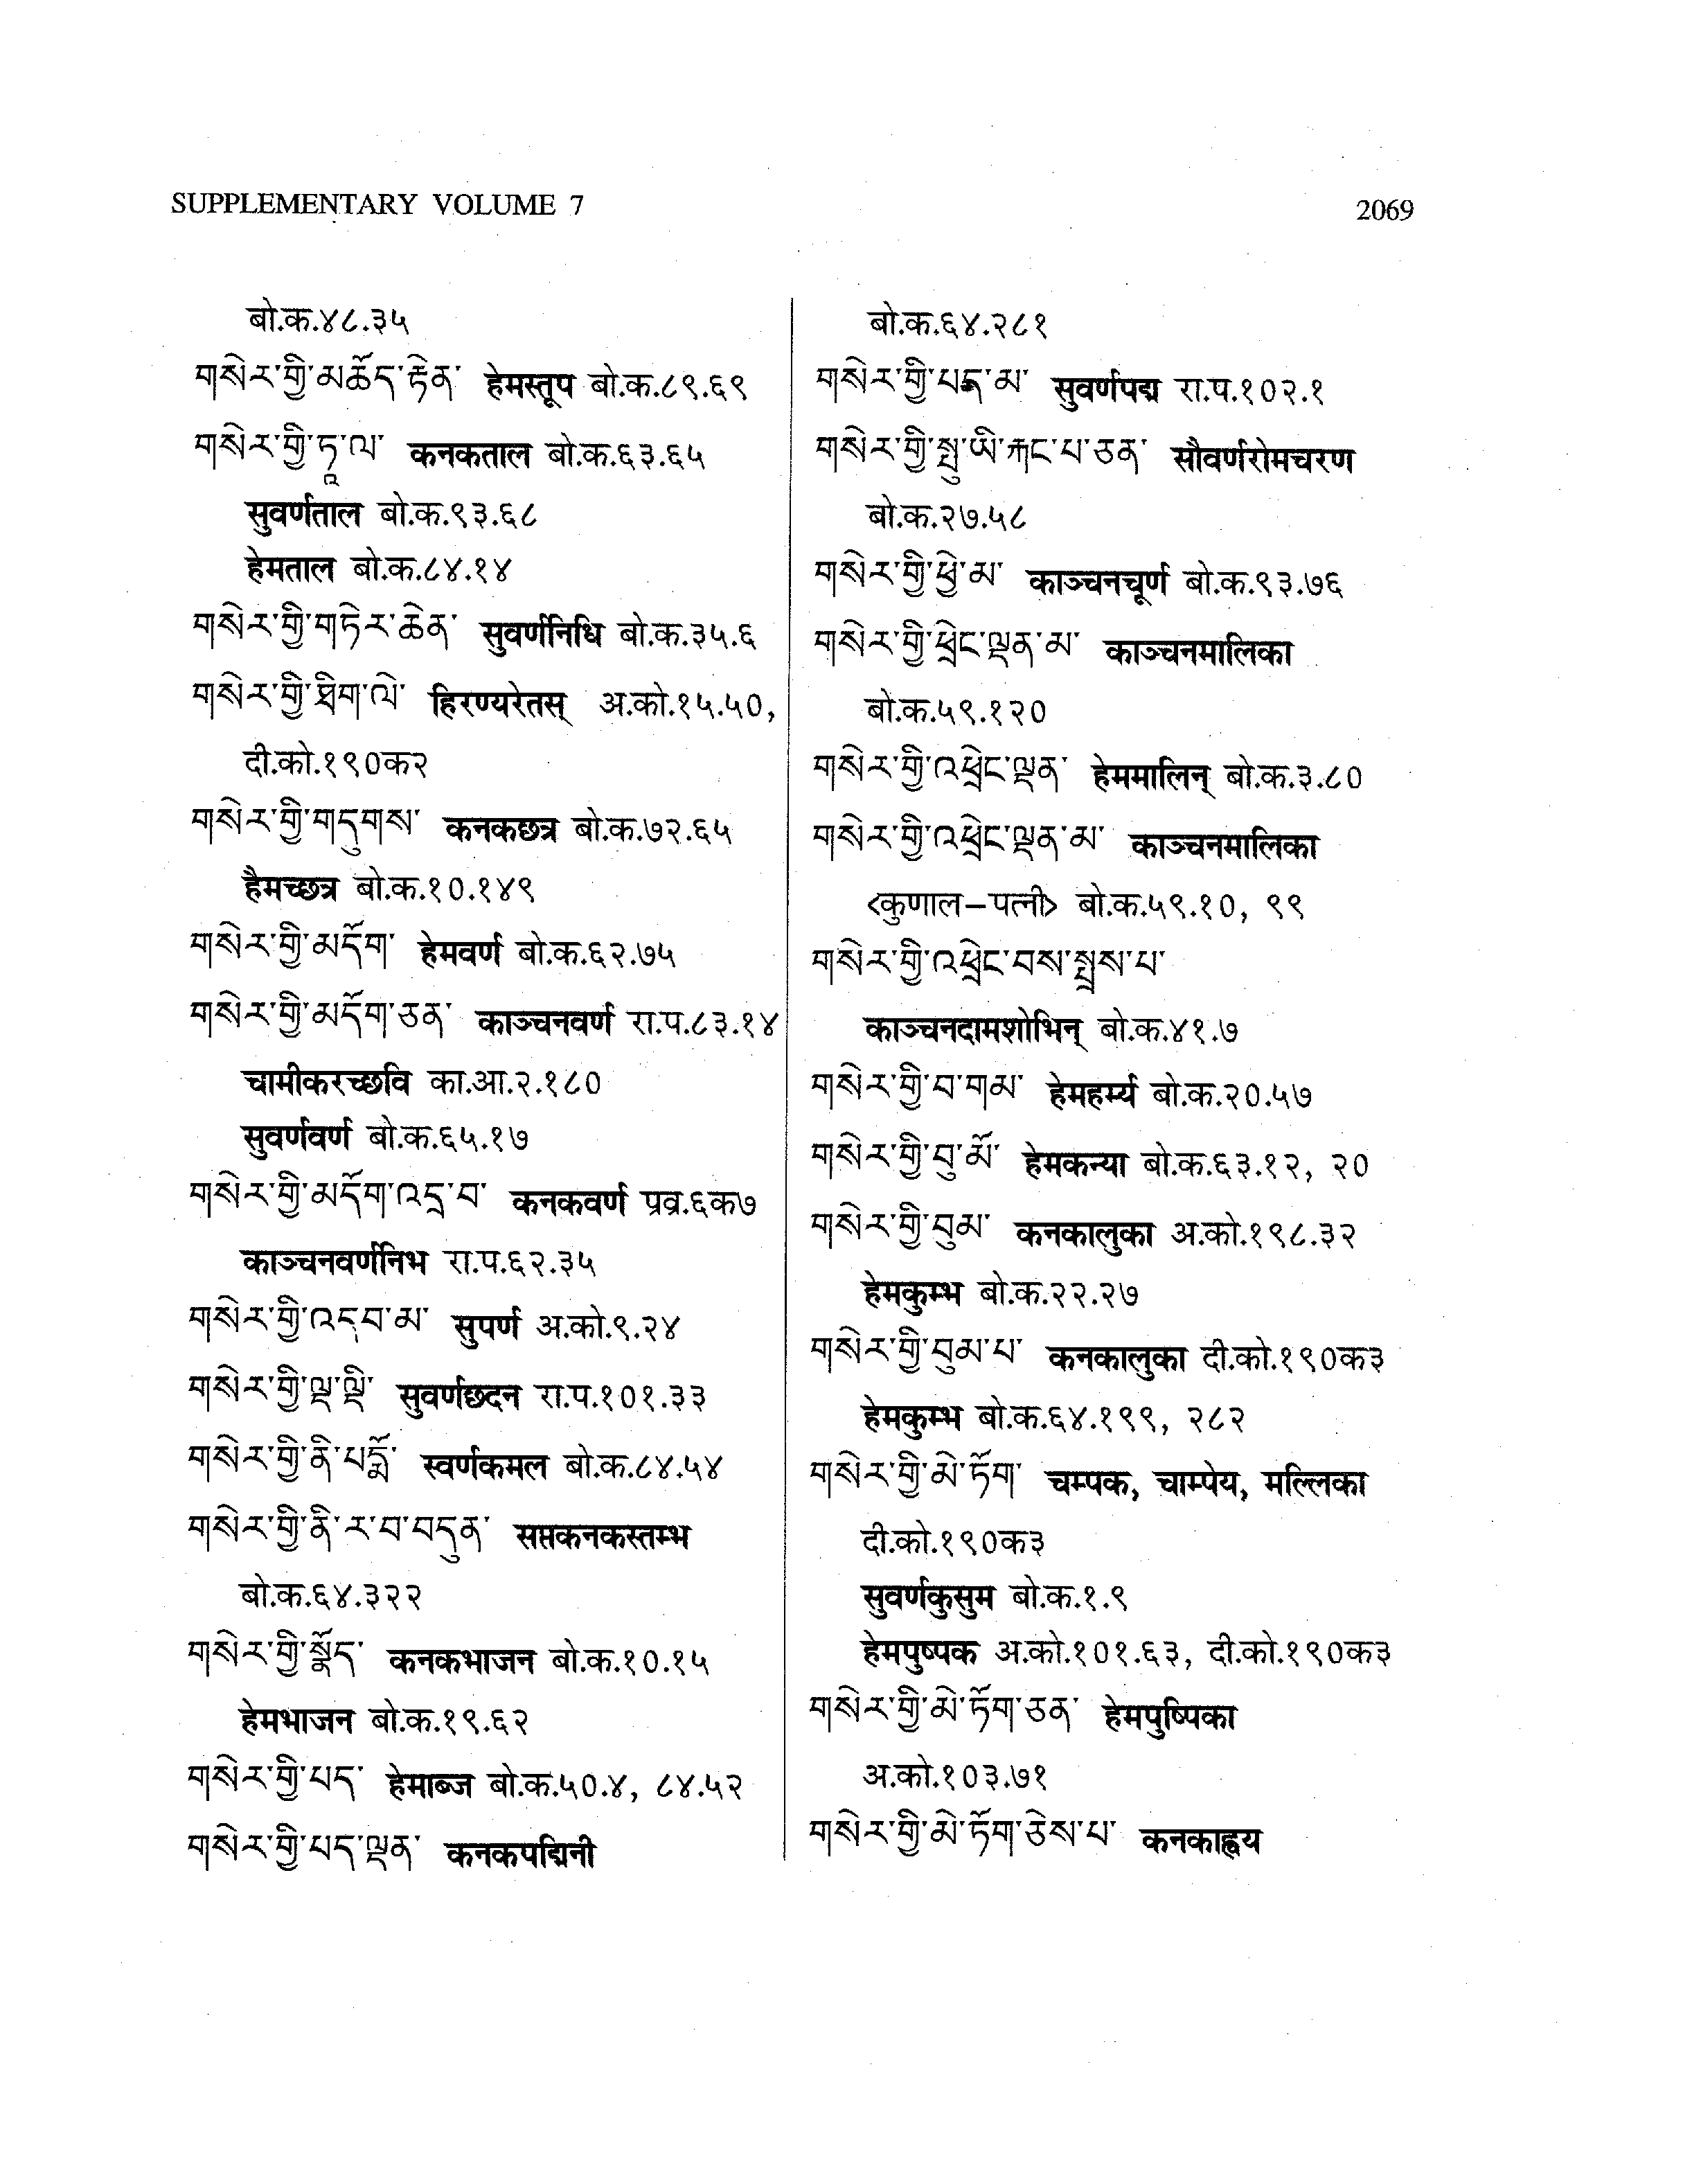 SUPPLEMENTARY VOLUME 7
2069
बो.क.४८.३५
གསེར་གྱི་མཆོད་རྟེན་ हेमस्तूप बो.क.८९.६९
གསེར་གྱི་ཏཱ་ལ་ कनकताल बो.क.६३.६५
सुवर्णताल बो.क.९३.६८
हेमताल बो.क.८४.१४
གསེར་གྱི་གཏེར་ཆེན་ सुवर्णनिधि बो.क.३५.६
གསེར་གྱི་ཐིག་ལེ་ हिरण्यरेतस् अ.को.१५.५०,
दी.को.१९०क२
གསེར་གྱི་གདུགས་ कनकछत्र बो.क.७२.६५
हैमच्छत्र बो.क.१०.१४९
གསེར་གྱི་མདོག་ हेमवर्ण बो.क.६२.७५
གསེར་གྱི་མདོག་ཅན་ काञ्चनवर्ण रा.प.८३.१४
चामीकरच्छवि का.आ.२.१८०
सुवर्णवर्ण बो.क.६५.१७
གསེར་གྱི་མདོག་འདྲ་བ་ कनकवर्ण प्रव्र.६क७
काञ्चनवर्णनिभ रा.प.६२.३५
གསེར་གྱི་འདབ་མ་ सुपर्ण अ.को.९.२४
གསེར་གྱི་ལྡ་ལྡི་ सुवर्णछदन रा.प.१०१.३३
གསེར་གྱི་ནི་པདྨོ་ स्वर्णकमल बो.क.८४.५४
གསེར་གྱི་ནི་ར་བ་བདུན་ सप्तकनकस्तम्भ
बो.क.६४.३२२
གསེར་གྱི་སྣོད་ कनकभाजन बो.क.१०.१५
हेमभाजन बो.क.१९.६२
གསེར་གྱི་པད་ हेमाब्ज बो.क.५०.४, ८४.५२
གསེར་གྱི་པད་ལྡན་ कनकपद्मिनी
बो.क.६४.२८१
གསེར་གྱི་པདྨ་མ་ सुवर्णपद्म रा.प.१०२.१
གསེར་གྱི་སྤུ་ཡི་རྐང་པ་ཅན་ सौवर्णरोमचरण
बो.क.२७.५८
གསེར་གྱི་ཕྱེ་མ་ काञ्चनचूर्ण बो.क.९३.७६
གསེར་གྱི་ཕྲེང་ལྡན་མ་ काञ्चनमालिका
बो.क.५९.१२०
གསེར་གྱི་འཕྲེང་ལྡན་ हेममालिन् बो.क.३.८०
གསེར་གྱི་འཕྲེང་ལྡན་མ་ काञ्चनमालिका
<कुणाल–पत्नी> बो.क.५९.१०, ९९
གསེར་གྱི་འཕྲེང་བས་སྤྲས་པ་
काञ्चनदामशोभिन् बो.क.४१.७
གསེར་གྱི་བ་གམ་ हेमहर्म्य बो.क.२०.५७
གསེར་གྱི་བུ་མོ་ हेमकन्या बो.क.६३.१२, २०
གསེར་གྱི་བུམ་ कनकालुका अ.को.१९८.३२
हेमकुम्भ बो.क.२२.२७
གསེར་གྱི་བུམ་པ་ कनकालुका दी.को.१९०क३
हेमकुम्भ बो.क.६४.१९९, २८२
གསེར་གྱི་མེ་ཏོག་ चम्पक, चाम्पेय, मल्लिका
दी.को.१९०क३
सुवर्णकुसुम बो.क.१.९
हेमपुष्पक अ.को.१०१.६३, दी.को.१९०क३
གསེར་གྱི་མེ་ཏོག་ཅན་ हेमपुष्पिका
अ.को.१०३.७१
གསེར་གྱི་མེ་ཏོག་ཅེས་པ་ कनकाह्वय